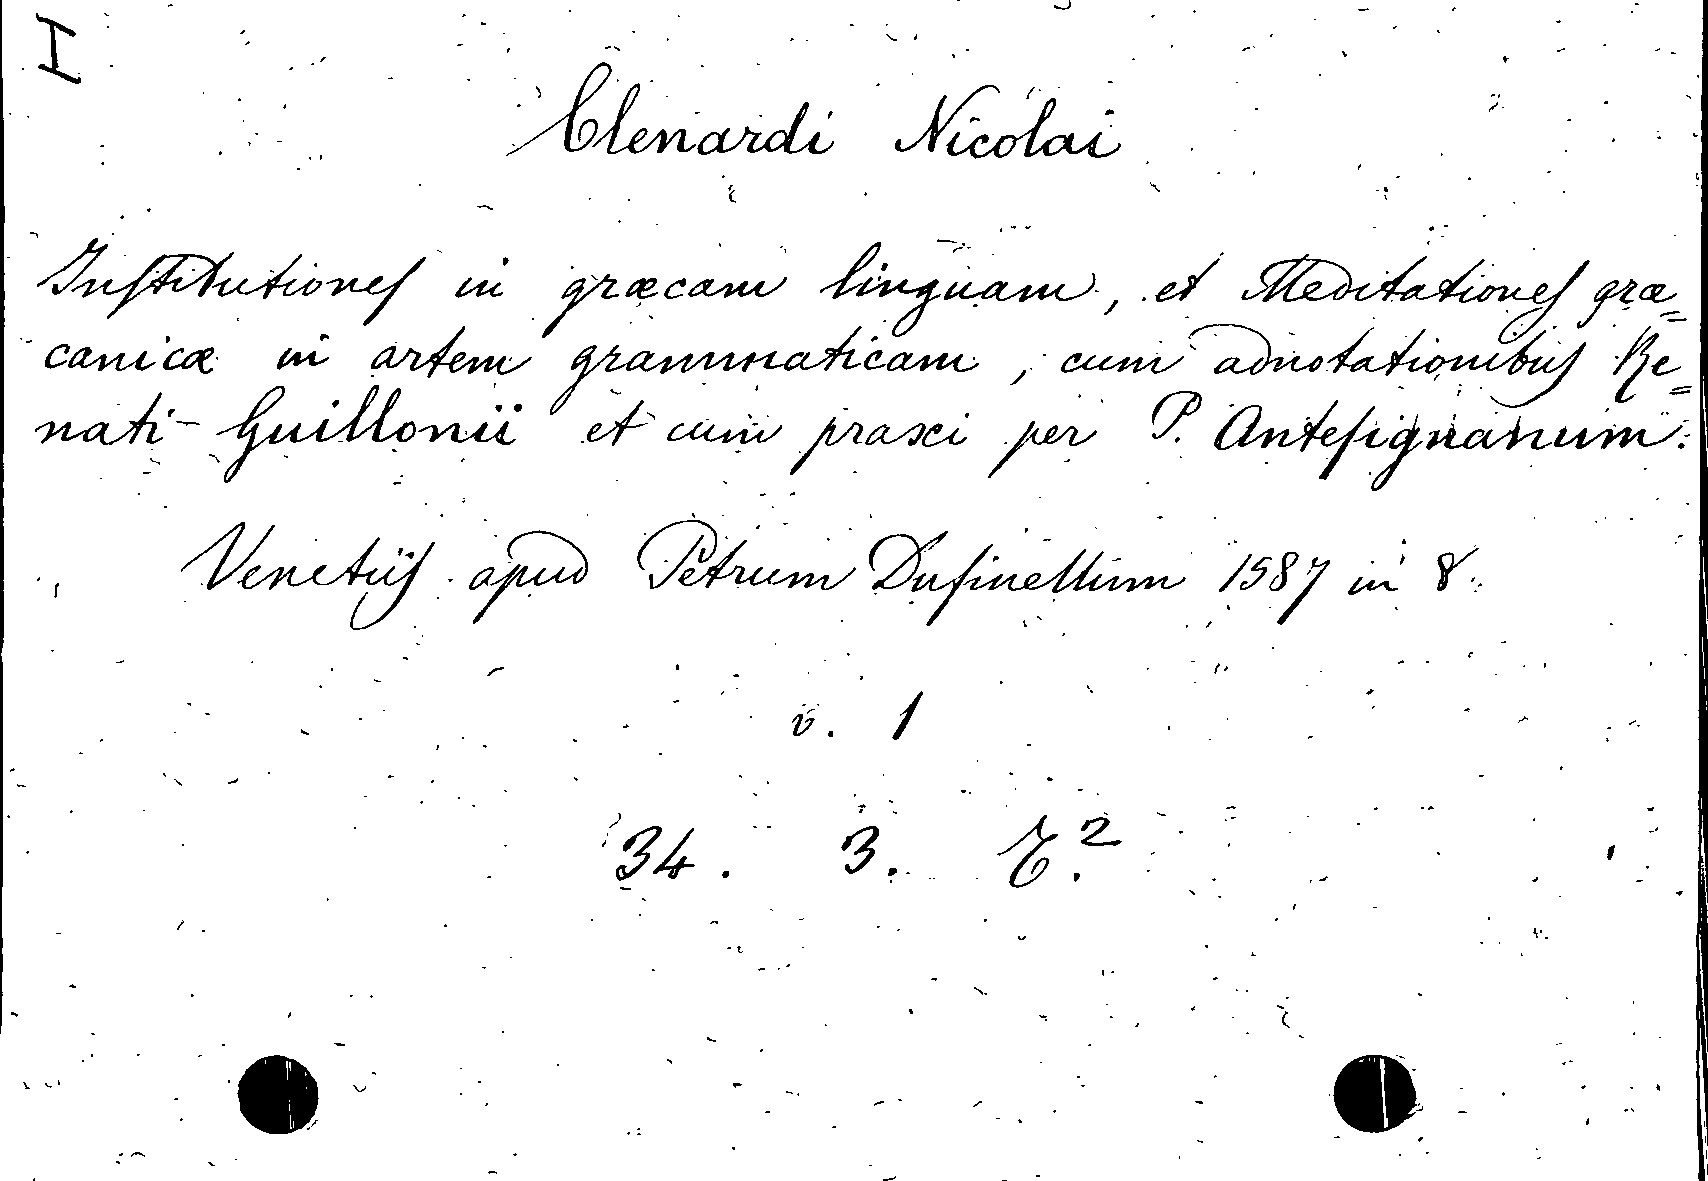 I
Clenardi Nicolai
Institutiones in græcam linguam, et Meditationes græ=
canicæ in artem grammaticam, cum adnotationibus Re=
nati Guillonii et cum praxi per P. Antesignanum.
Venetiis apud Petrum Dusinellum 1587 in 8.
v. 1
34. 3. E.²